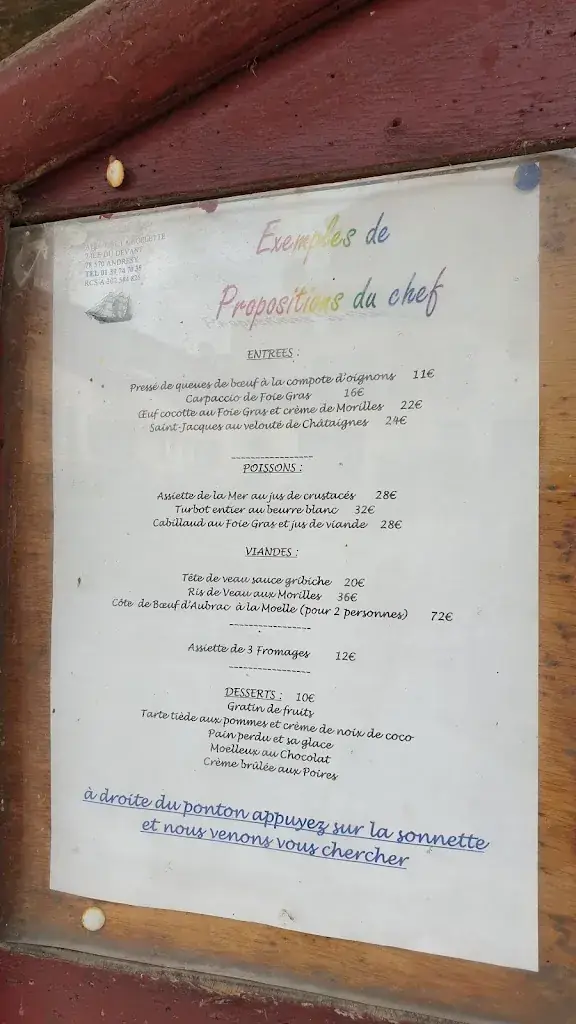 RUE DU DEVART
78 570 ANDRESY
TEL 01 39 74 78 35
Exemples de
Propositions du chef
ENTREES :
Pressé de queues de bœuf à la compote d'oignons 11€
Carpaccio de Foie Gras 16€
Œuf cocotte au Foie Gras et crème de Morilles 22€
Saint-Jacques au velouté de Châtaignes 24€
------------------
POISSONS :
Assiette de la Mer au jus de crustacés 28€
Turbot entier au beurre blanc 32€
Cabillaud au Foie Gras et jus de viande 28€
VIANDES :
Tête de veau sauce gribiche 20€
Ris de Veau aux Morilles 36€
Côte de Bœuf d'Aubrac à la Moelle (pour 2 personnes) 72€
------------------
Assiette de 3 Fromages 12€
------------------
DESSERTS : 10€
Gratin de fruits
Tarte tiède aux pommes et crème de noix de coco
Pain perdu et sa glace
Moelleux au Chocolat
Crème brûlée aux Poires
à droite du ponton appuyez sur la sonnette
et nous venons vous chercher